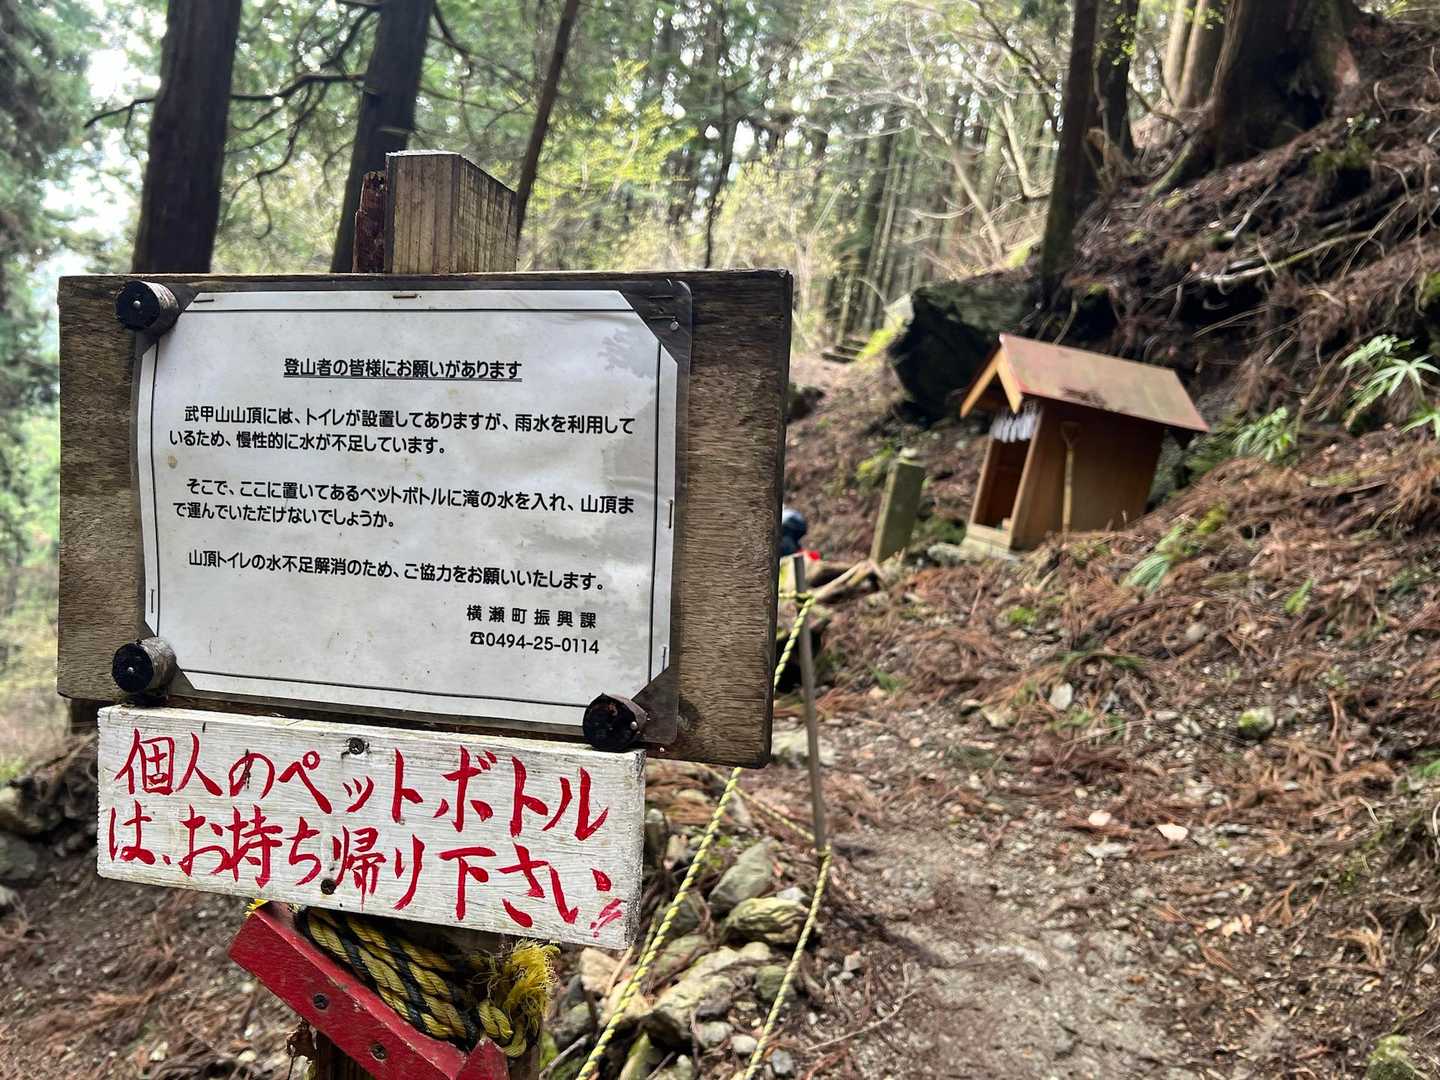 登山者の皆様にお願いがあります
武甲山山頂には、トイレが設置してありますが、雨水を利用して
いるため、慢性的に水が不足しています。
そこで、ここに置いてあるペットボトルに滝の水を入れ、山頂ま
で運んでいただけないでしょうか。
山頂トイレの水不足解消のため、ご協力をお願いいたします。
横瀬町振興課
☎0494-25-0114
個人のペットボトル
は、お持ち帰り下さい!!